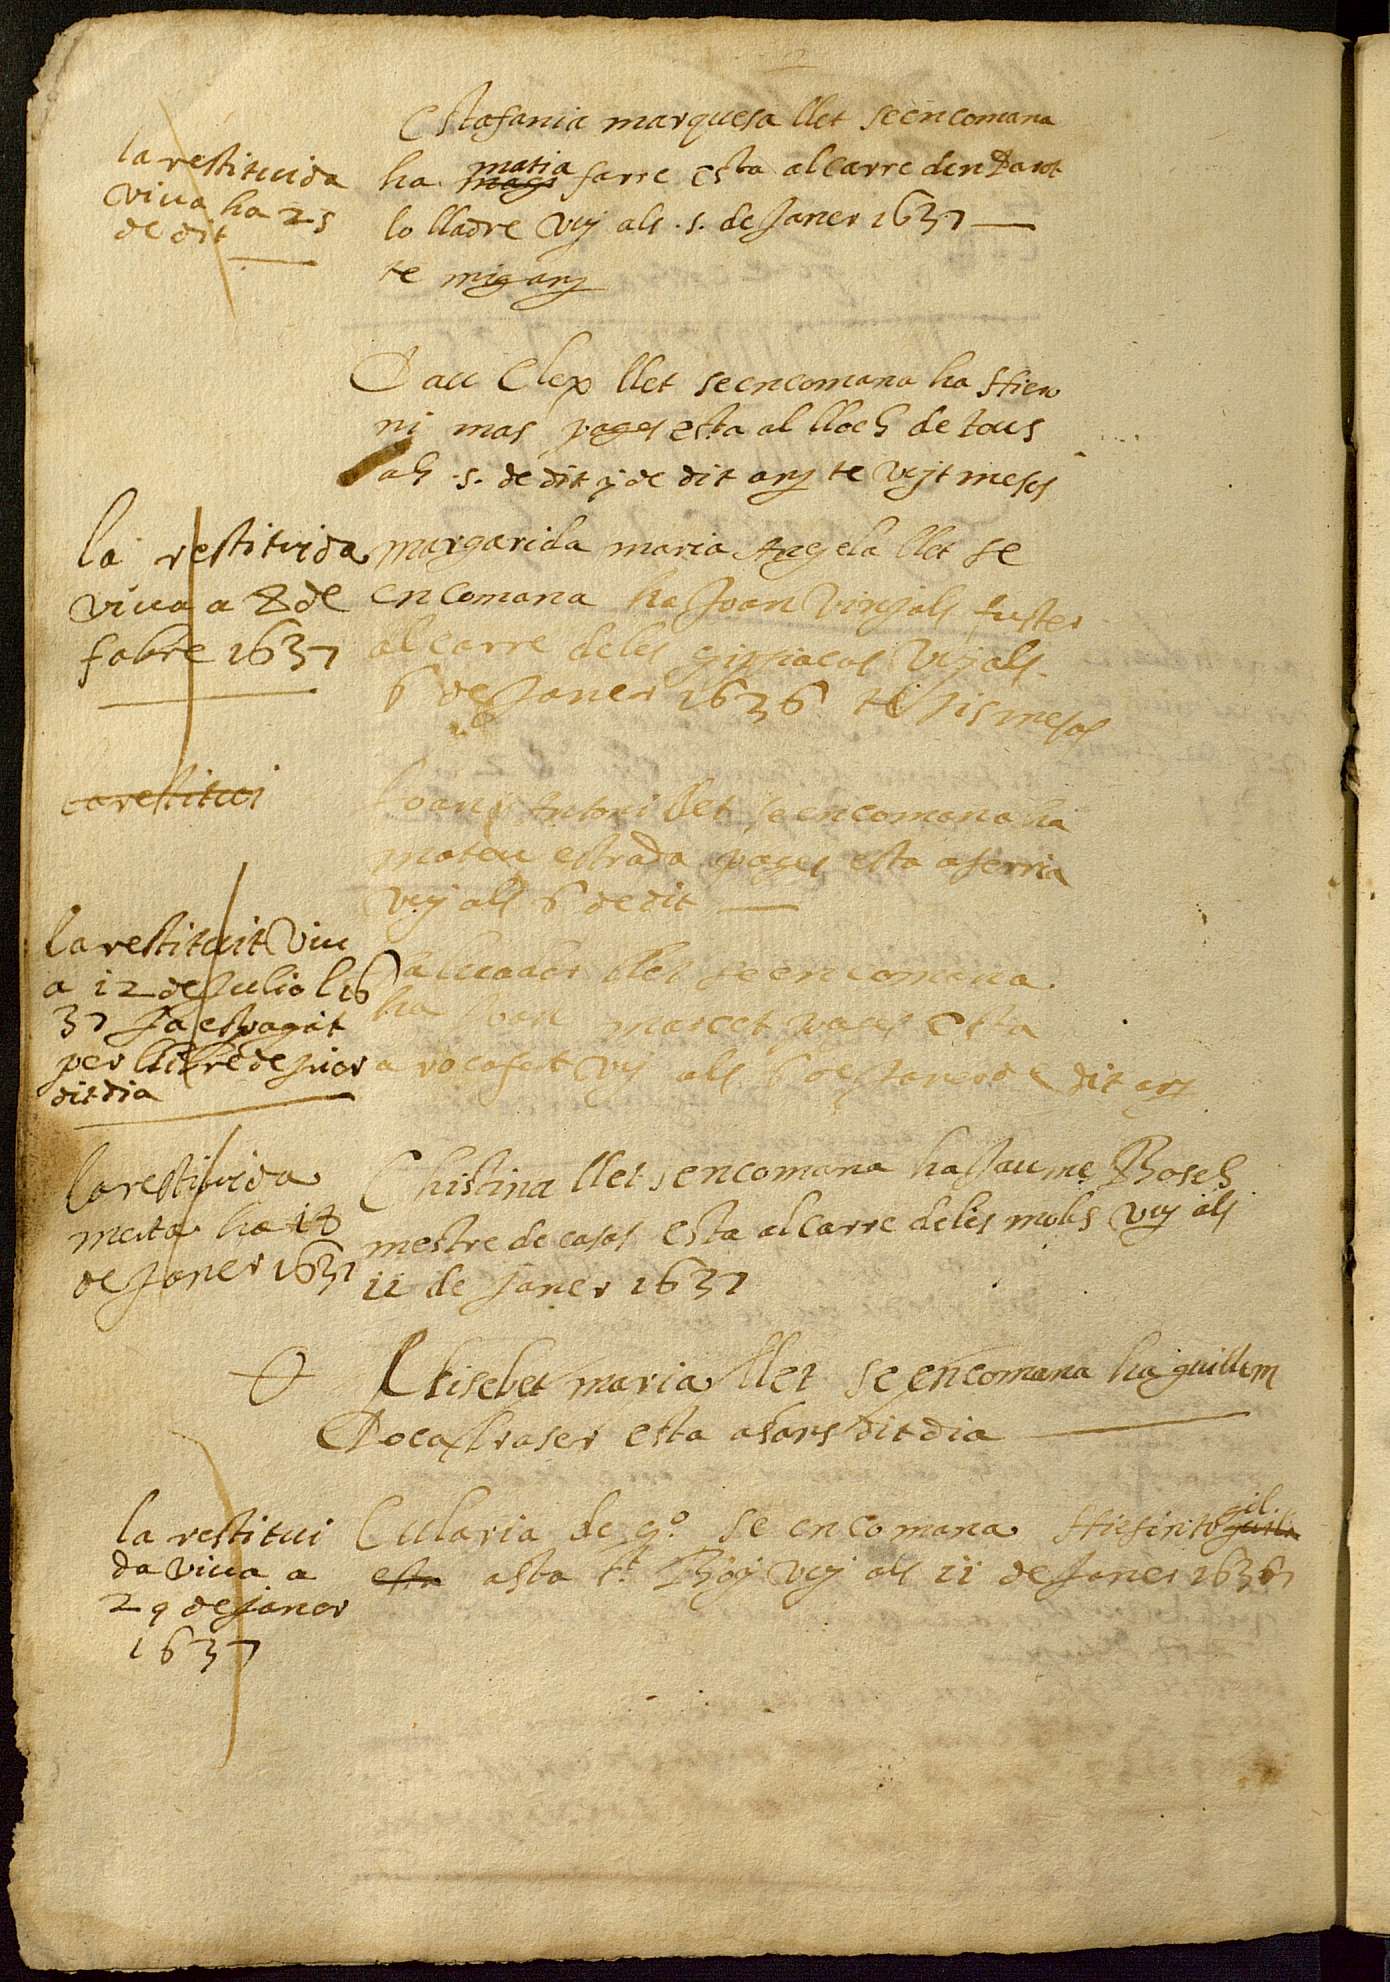 la restituida
viua ha 25
de dit
Estafania marquesa llet se encomana
ha matia farre esta al carre den
lo lladre vuy als .5. de Janer 1637
te mig any
Pau Elex llet se encomana ha Hiero
ni mas pages esta al lloch de tous
als .5. de dit y de dit any te vuyt mesos
la restituida
viua a 8 de
fabre 1637
margarida maria Angela llet se
encomana ha Joan Vinyals fuster
al carre de les vuy als
6 de Janer 1636 te sis mesos
la restitui
Joan Antoni llet se encomana ha
mateu estrada pages esta a serria
vuy als 6 de dit
la restituit viu
a 12 de Juliol 16
37 Ja es pagat
per llibre de prior
dit dia
saluador llet se encomana
ha Joan marcet pages esta
a rocafort vuy als 6 de Janer de dit any
la restituida
morta ha 18
de Janer 1637
Christina llet sencomana ha Jaume Bosch
mestre de casas esta al carre de les molas vuy als
11 de Janer 1637
Elisebet maria llet se encomana ha guillem
Roca braser esta a sans dit dia
la restitui
da viua a
29 de Janer
1637
Eularia de go. se encomana Hiesinto gil
esta asta St. Boy vuy als 11 de Janer 1637